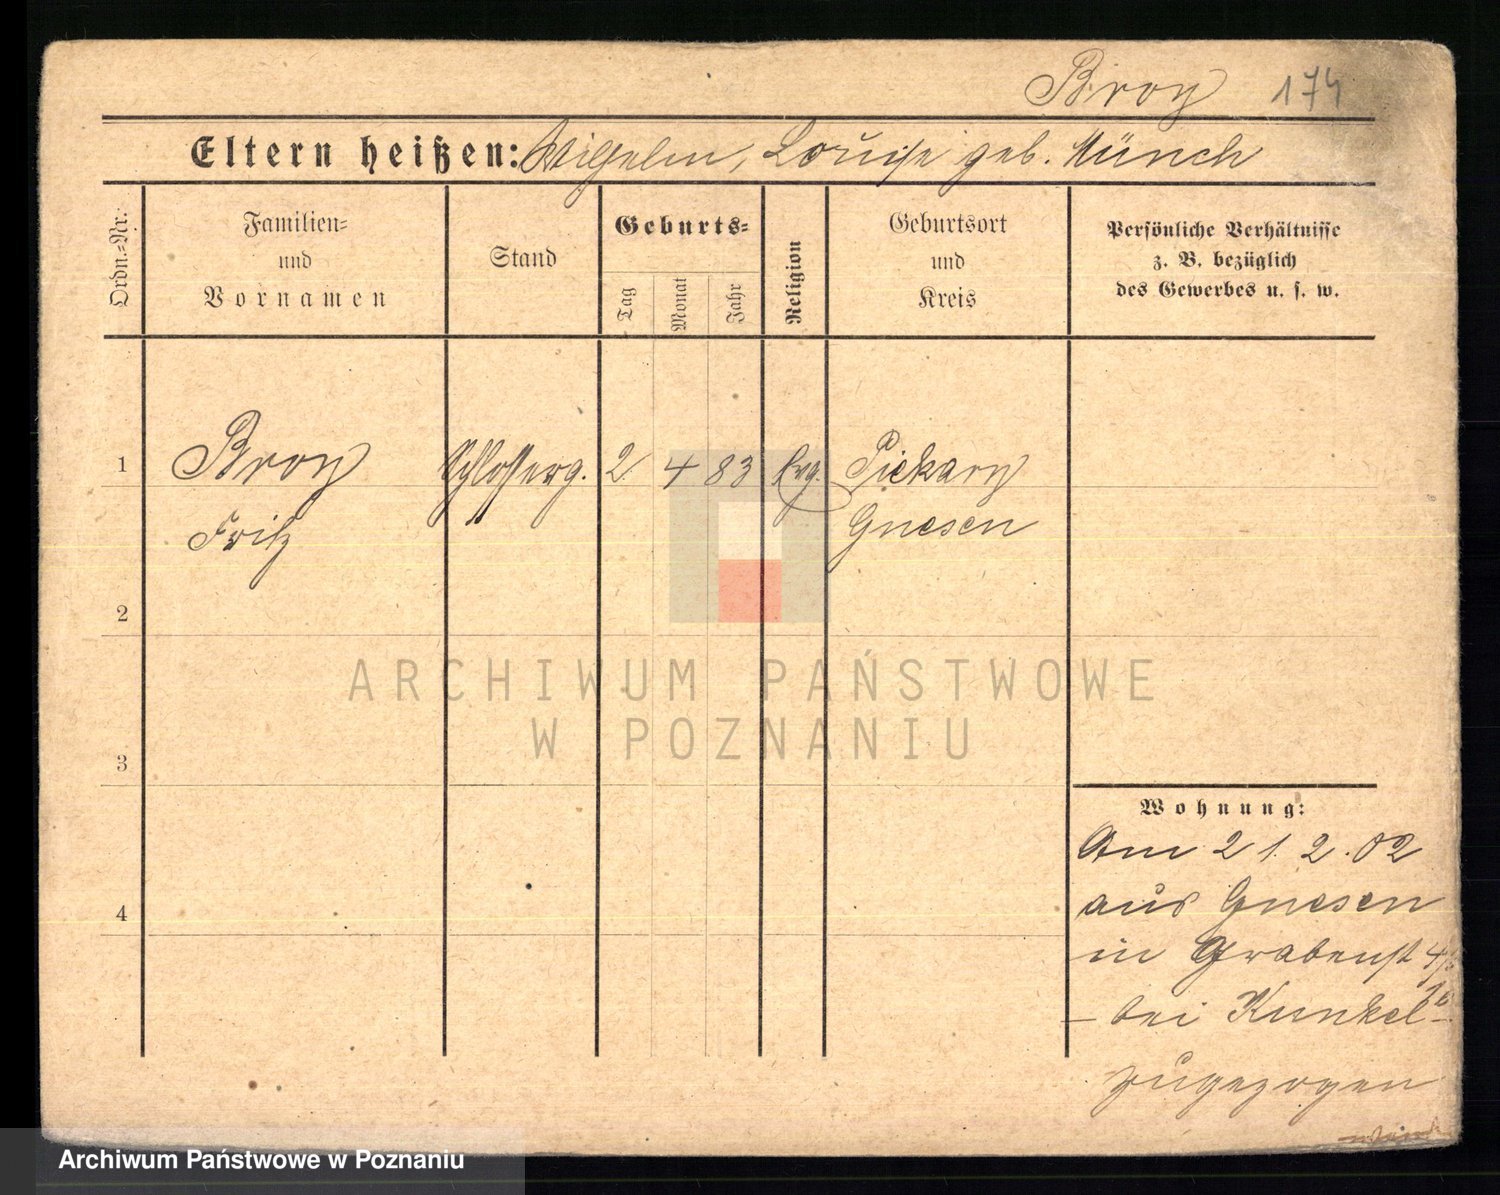 Broy 174
Eltern heißen: Wilhelm, Louise geb. Münch
Ordn.-Nr.
Familien-
und
Vornamen
Stand
Geburts-
Tag
Monat
Jahr
Religion
Geburtsort
und
Kreis
Persönliche Verhältnisse
z. B. bezüglich
des Gewerbes u. s. w.
1 Broy Schlosserg. 2 4 83 Evg. Piekary
Fritz Gnesen
2
3
4
ARCHIWUM PAŃSTWOWE
W POZNANIU
Wohnung:
Am 21. 2. 02
aus Gnesen
in Grabenst
– bei Kunkel –
zugezogen
Archiwum Państwowe w Poznaniu